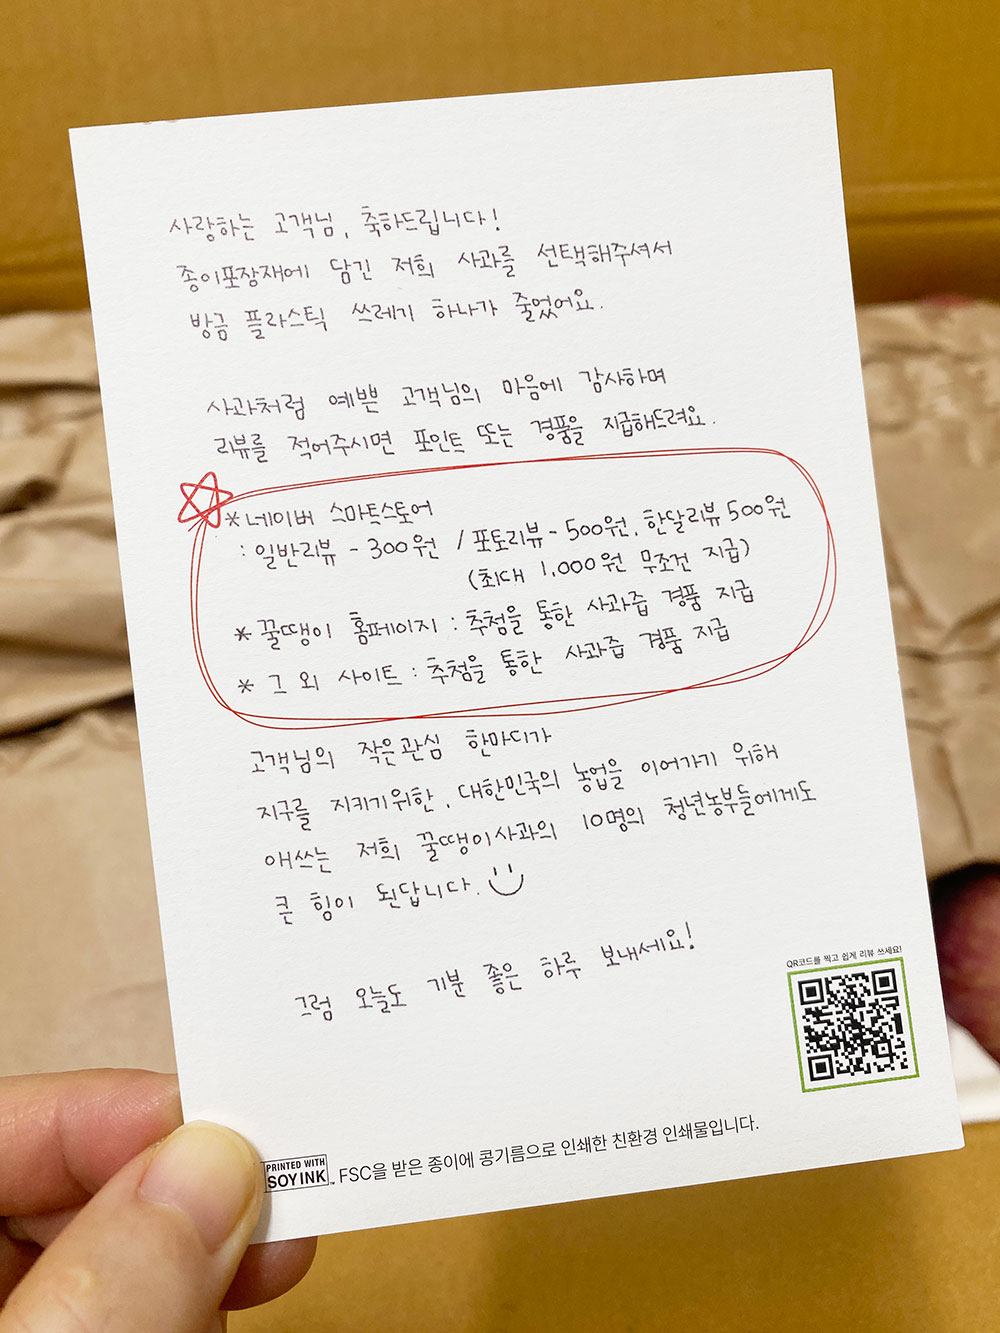 사랑하는 고객님, 축하드립니다!
종이포장재에 담긴 저희 사과를 선택해주셔서
방금 플라스틱 쓰레기 하나가 줄었어요.
사과처럼 예쁜 고객님의 마음에 감사하며
리뷰를 적어주시면 포인트 또는 경품을 지급해드려요.
* 네이버 스마트스토어
: 일반리뷰 - 300원 / 포토리뷰 - 500원, 한달리뷰 500원
(최대 1,000원 무조건 지급)
* 꿀땡이 홈페이지 : 추첨을 통한 사과즙 경품 지급
* 그 외 사이트 : 추첨을 통한 사과즙 경품 지급
고객님의 작은관심 한마디가
지구를 지키기위한, 대한민국의 농업을 이어가기 위해
애쓰는 저희 꿀땡이사과의 10명의 청년농부들에게도
큰 힘이 된답니다.
그럼 오늘도 기분 좋은 하루 보내세요!
QR코드를 찍고 쉽게 리뷰 쓰세요!
PRINTED WITH
SOY INK™ FSC을 받은 종이에 콩기름으로 인쇄한 친환경 인쇄물입니다.